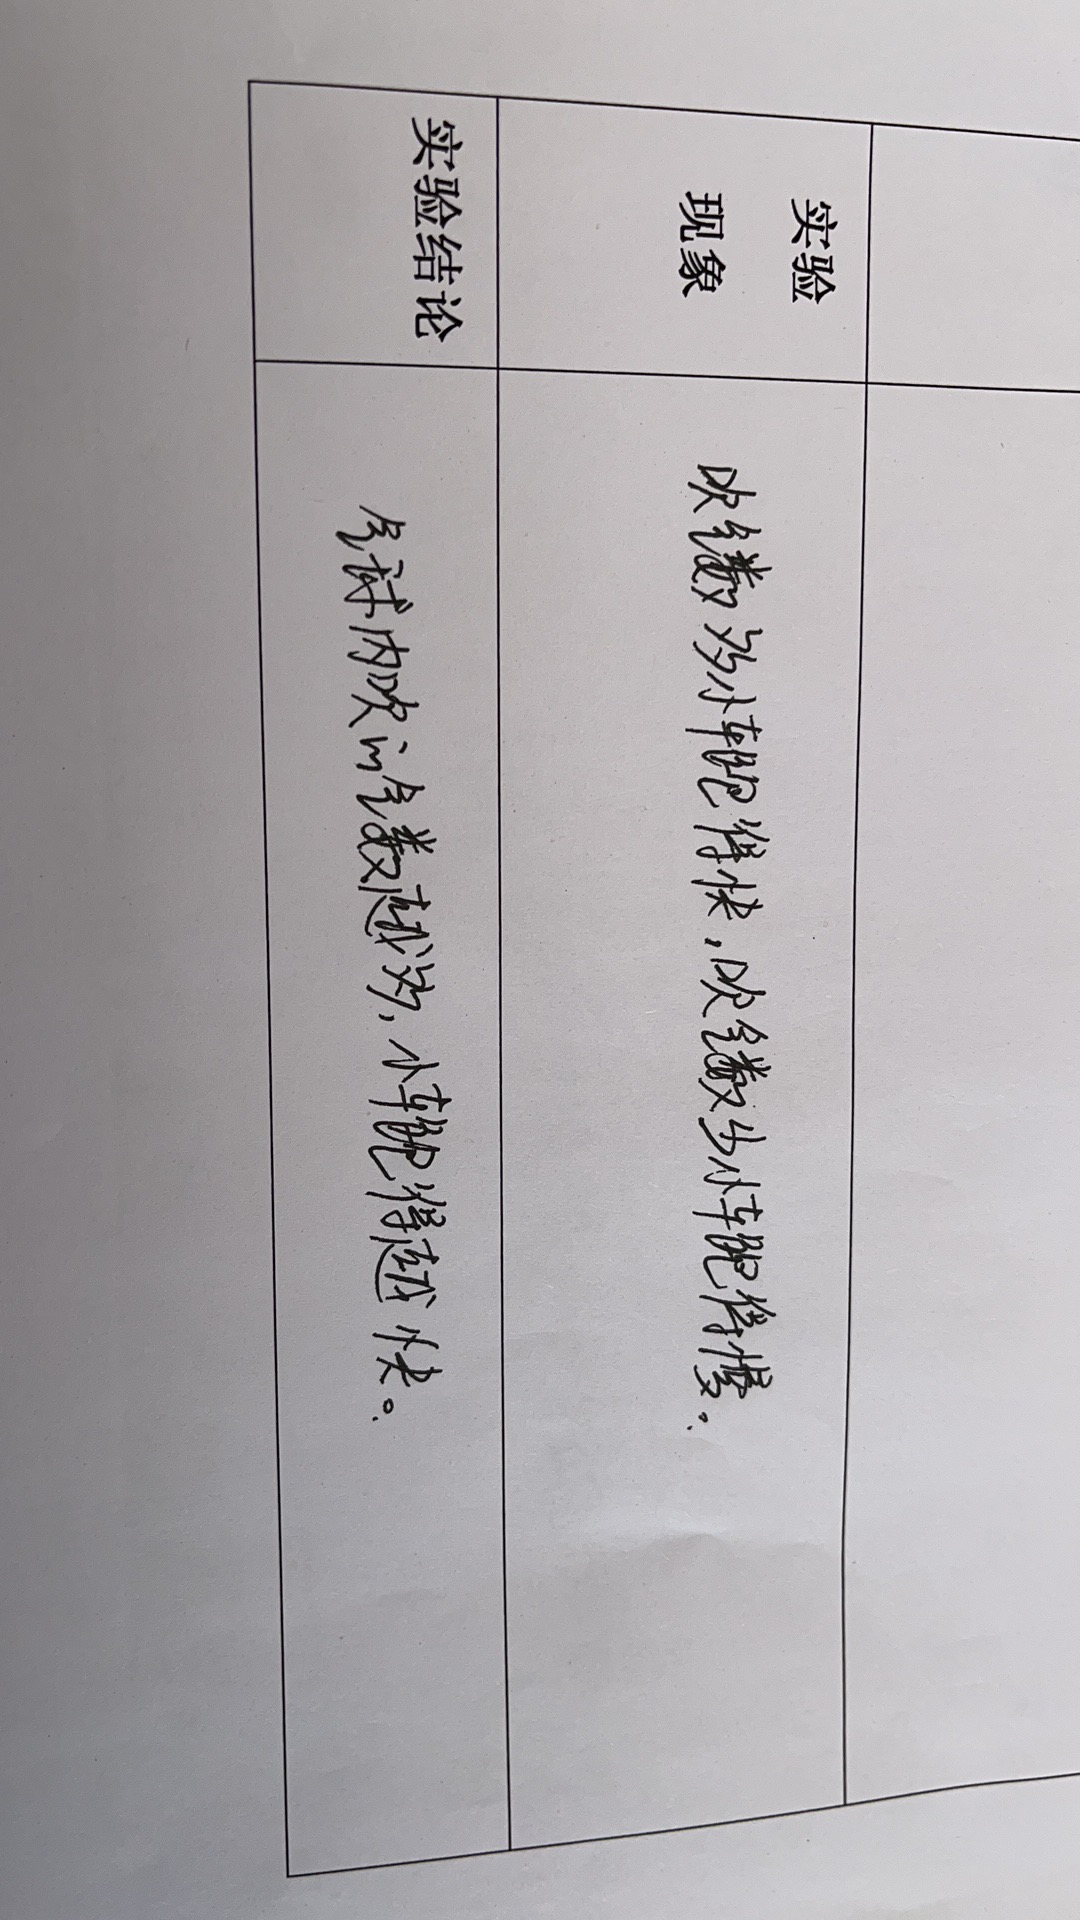 实验
现象
吹气数多小车跑得快，吹气数少小车跑得慢。
实验结论
气球内吹的气数越多，小车跑得越快。